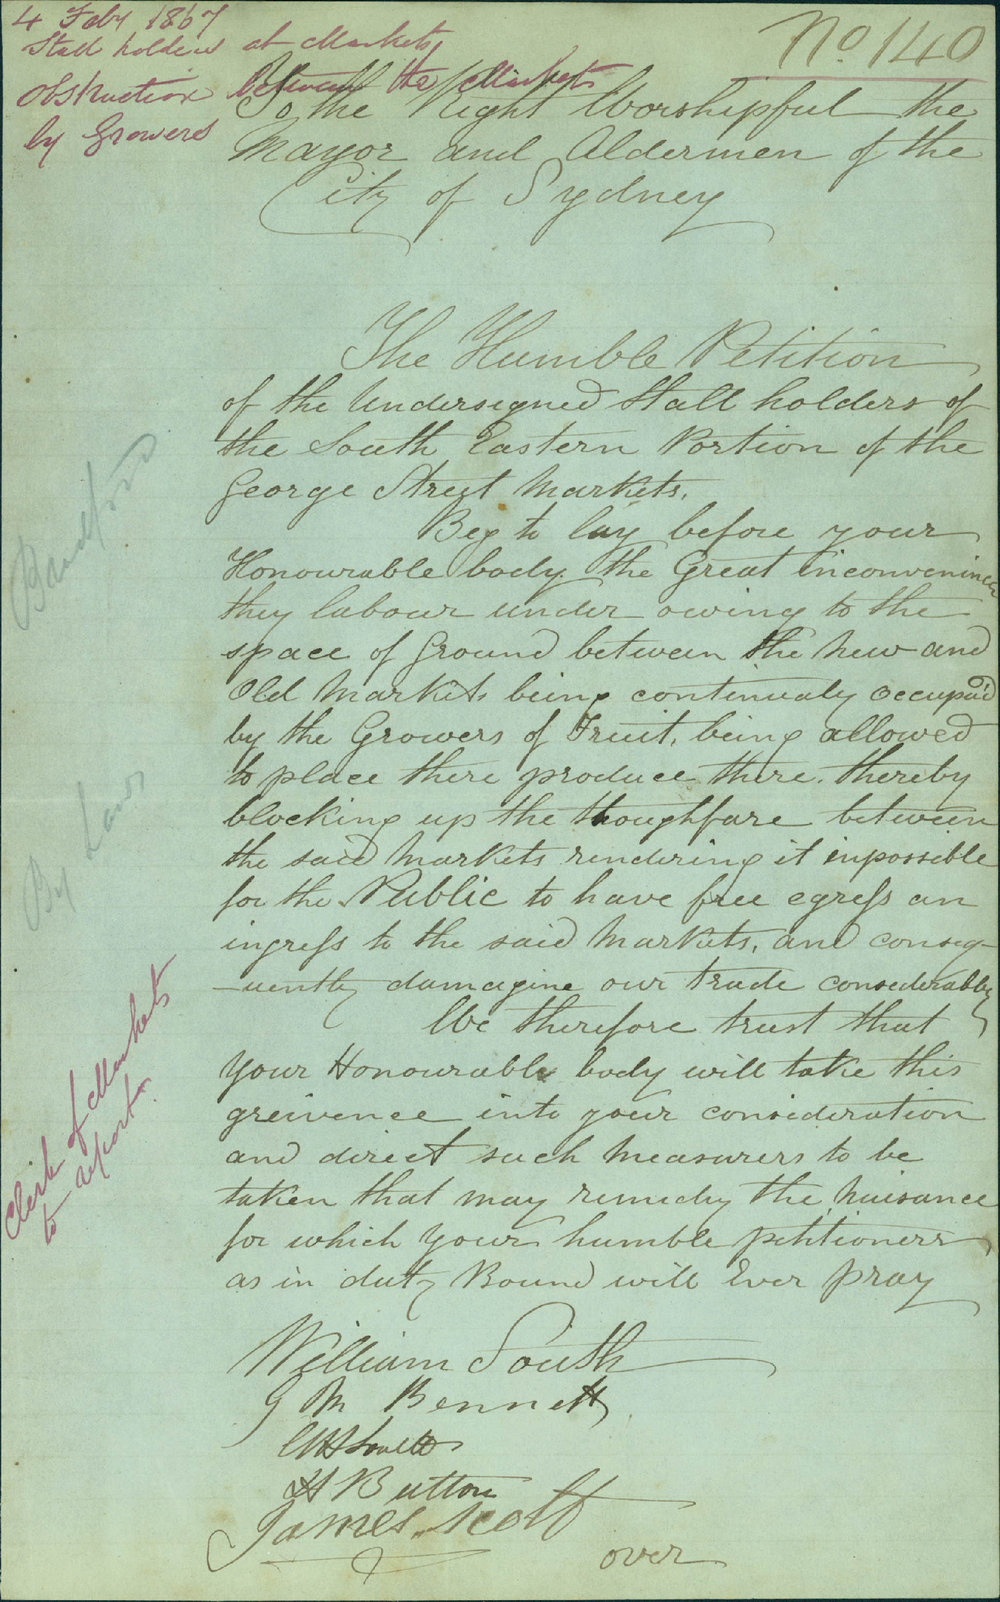 4 Feby 1867
Stall holders at Markets
obstruction between the Markets
by Growers
No. 140
To the Right Worshipful the
Mayor and Aldermen of the
City of Sydney
The Humble Petition
of the Undersigned Stall holders of
the South Eastern Portion of the
George Street Markets.
Beg to lay before your
Honourable body the Great inconvenience
they labour under owing to the
space of Ground between the New and
Old Markets being continualy occupa'd
by the Growers of Fruit, being allowed
to place there produce there. thereby
blocking up the thoughfare between
the said Markets rendering it inpossible
for the Public to have free egress an
ingress to the said Markets, and conseq-
-uently damagine our trade considerably
We therefore trust that
Your Honourable body will take this
greivence into your consideration
and direct such Measurers to be
taken that may remedy the Nuisance
for which Your humble petitioners
as in duty Bound will Ever pray
William South
G M Bennett
H Button
James Scott
over
By Laws
Clerk of Markets
to report